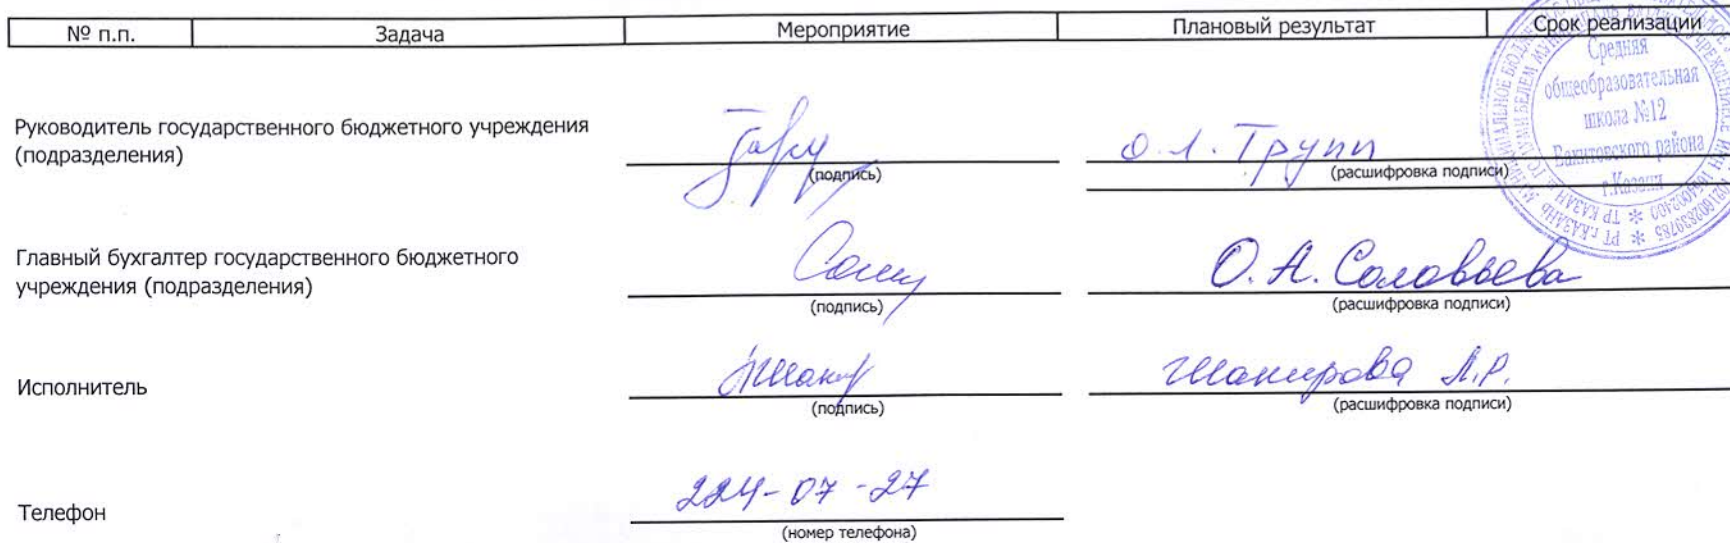 № п.п. Задача Мероприятие Плановый результат Срок реализации
Средняя
общеобразовательная
школа №12
Вахитовского района
г.Казани
Руководитель государственного бюджетного учреждения
(подразделения)
О.Л. Трупп
(подпись) (расшифровка подписи)
Главный бухгалтер государственного бюджетного
учреждения (подразделения)
О.А. Соловьева
(подпись) (расшифровка подписи)
Исполнитель
Шакирова Л.Р.
(подпись) (расшифровка подписи)
Телефон
224-07-27
(номер телефона)